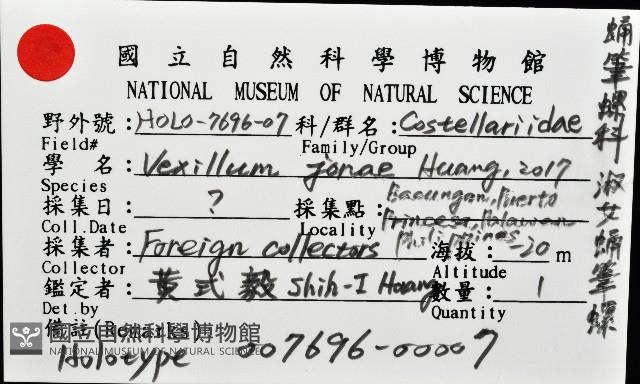 國立自然科學博物館
NATIONAL MUSEUM OF NATURAL SCIENCE
野外號：HOLO-7696-07 科/群名：Costellariidae
Field# Family/Group
學 名：Vexillum jonae Huang, 2017
Species
採集日：? 採集點：Bacungan, Puerto
Princesa, Palawan
Coll.Date Locality Philippines
採集者：Foreign collectors 海拔：-20 m
Collector Altitude
鑑定者：黃式毅 Shih-I Huang 數量：1
Det.by Quantity
備註(Remarks)
Holotype 007696-00007
蛹筆螺科 淑女蛹筆螺
國立自然科學博物館
NATIONAL MUSEUM OF NATURAL SCIENCE